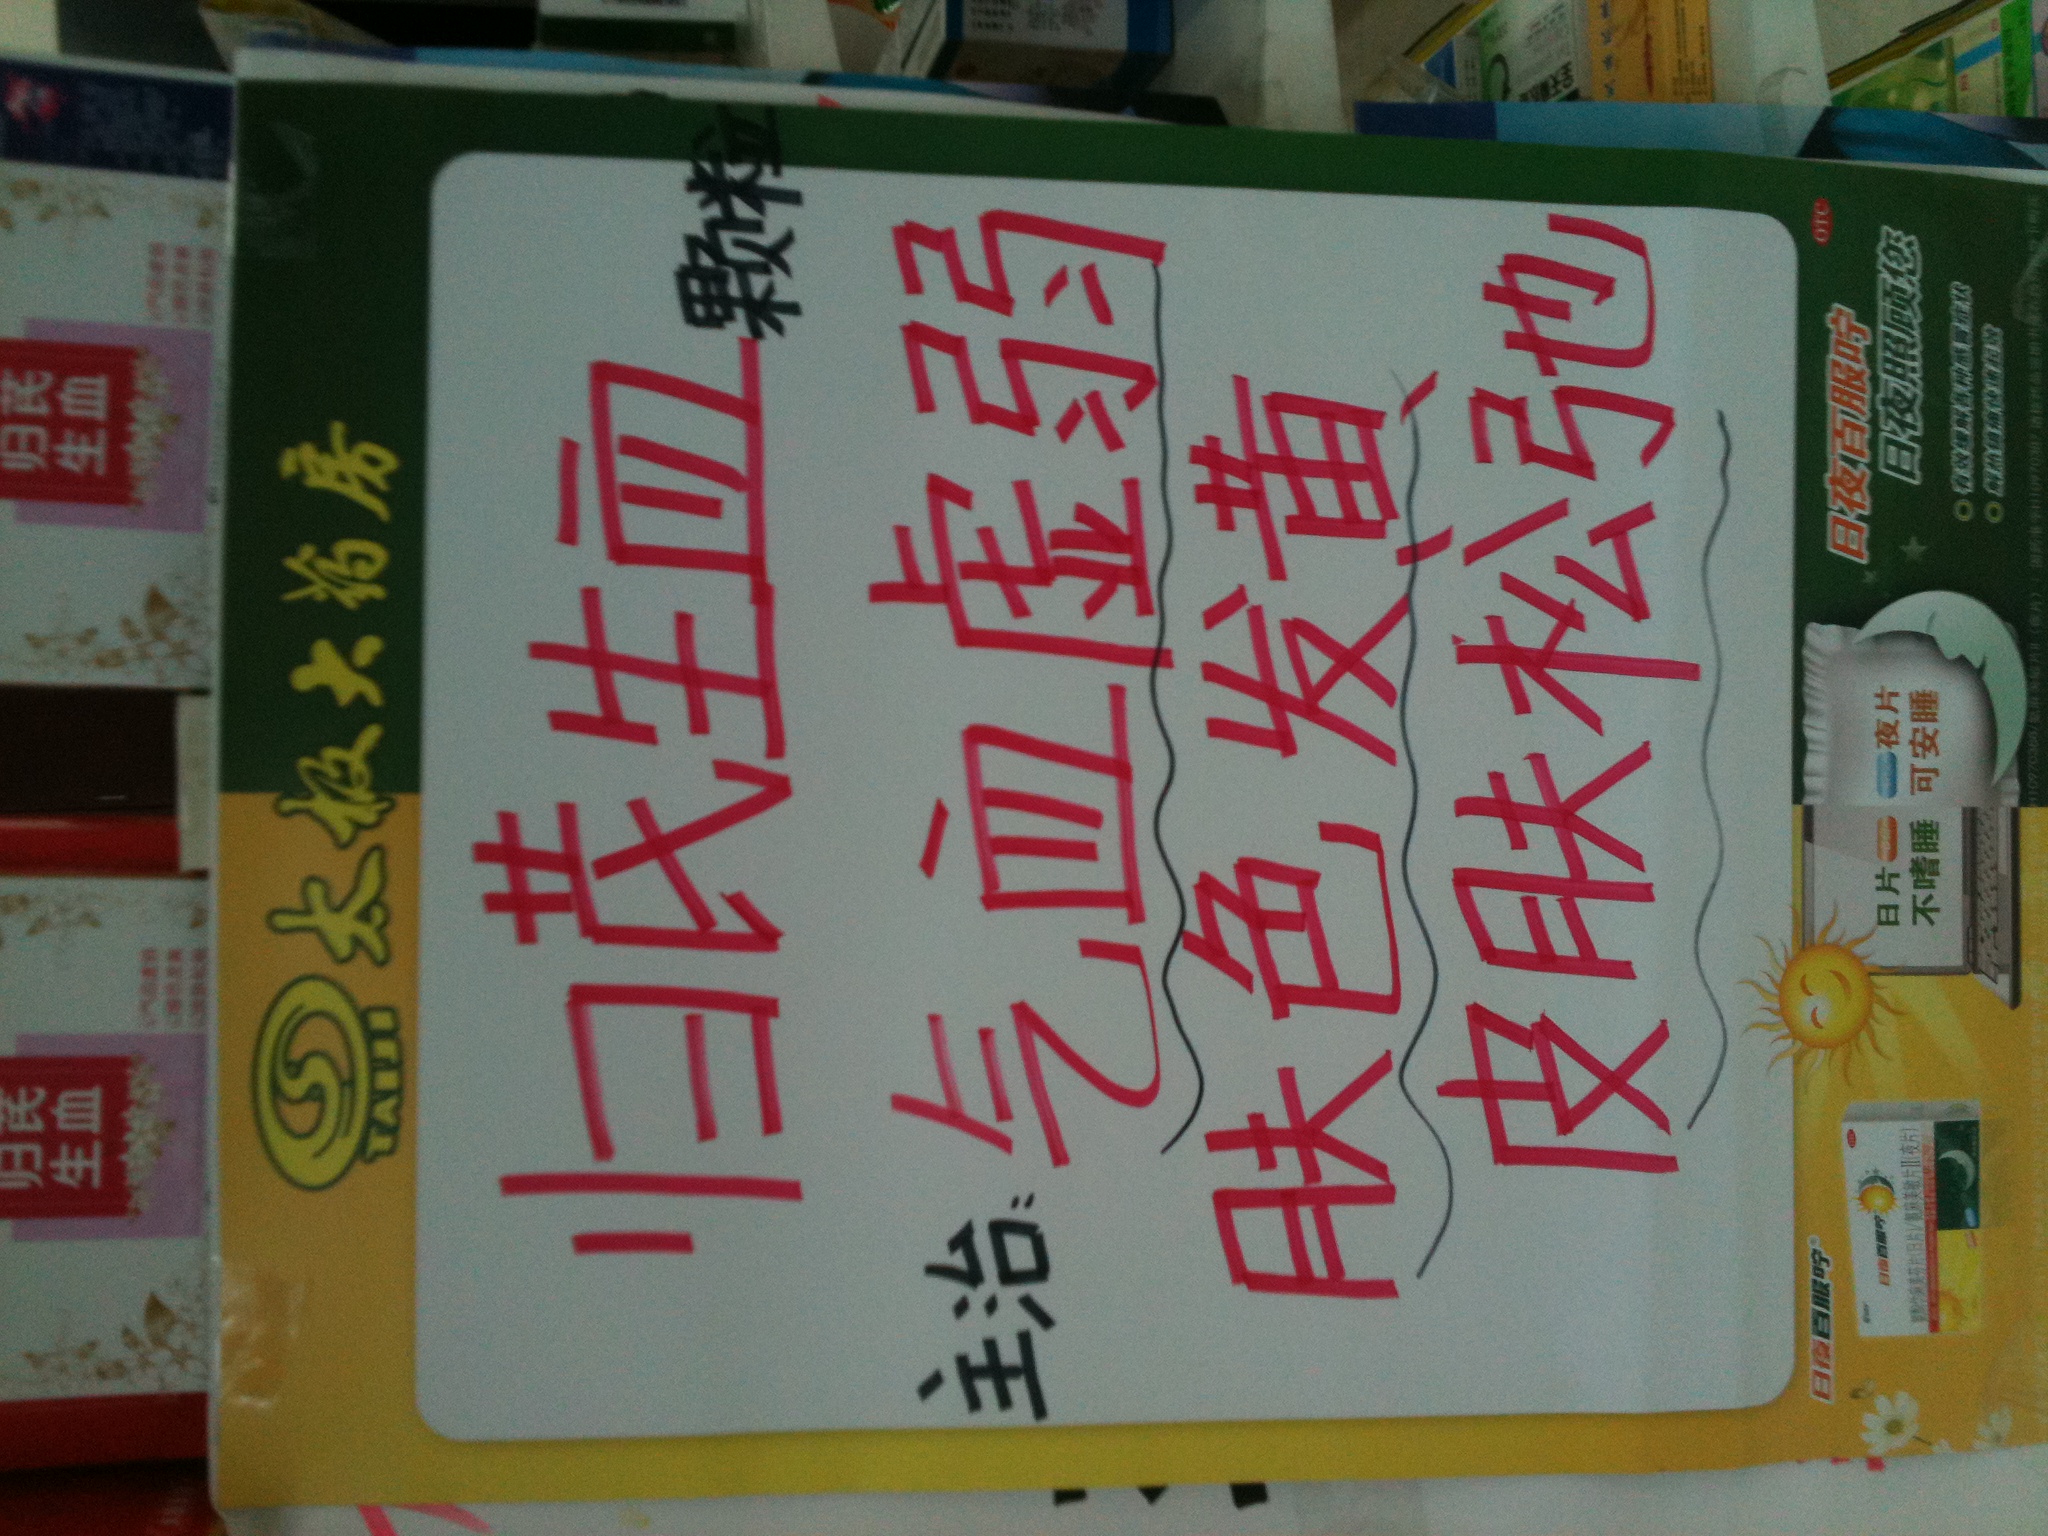 太极大药房
TAIJI
归芪生血颗粒
主治:气血虚弱
肤色发黄
皮肤松弛
OTC
日夜百服咛
日夜照顾您
日片 夜片
不嗜睡 可安睡
日夜百服咛
归芪
生血
归芪
生血